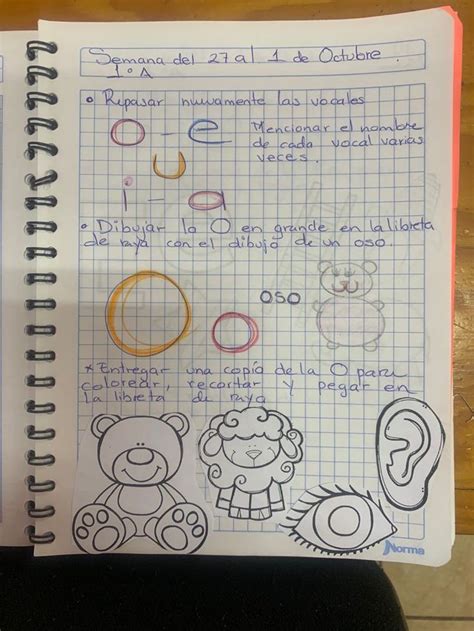 Semana del 27 al 1 de Octubre.
1º A
• Repasar nuevamente las vocales
o - e
u
i - a
Mencionar el nombre
de cada vocal varias
veces.
• Dibujar la O en grande en la libreta
de raya con el dibujo de un oso.
oso
* Entregar una copia de la O para
colorear, recortar y pegar en
la libreta de raya
Norma